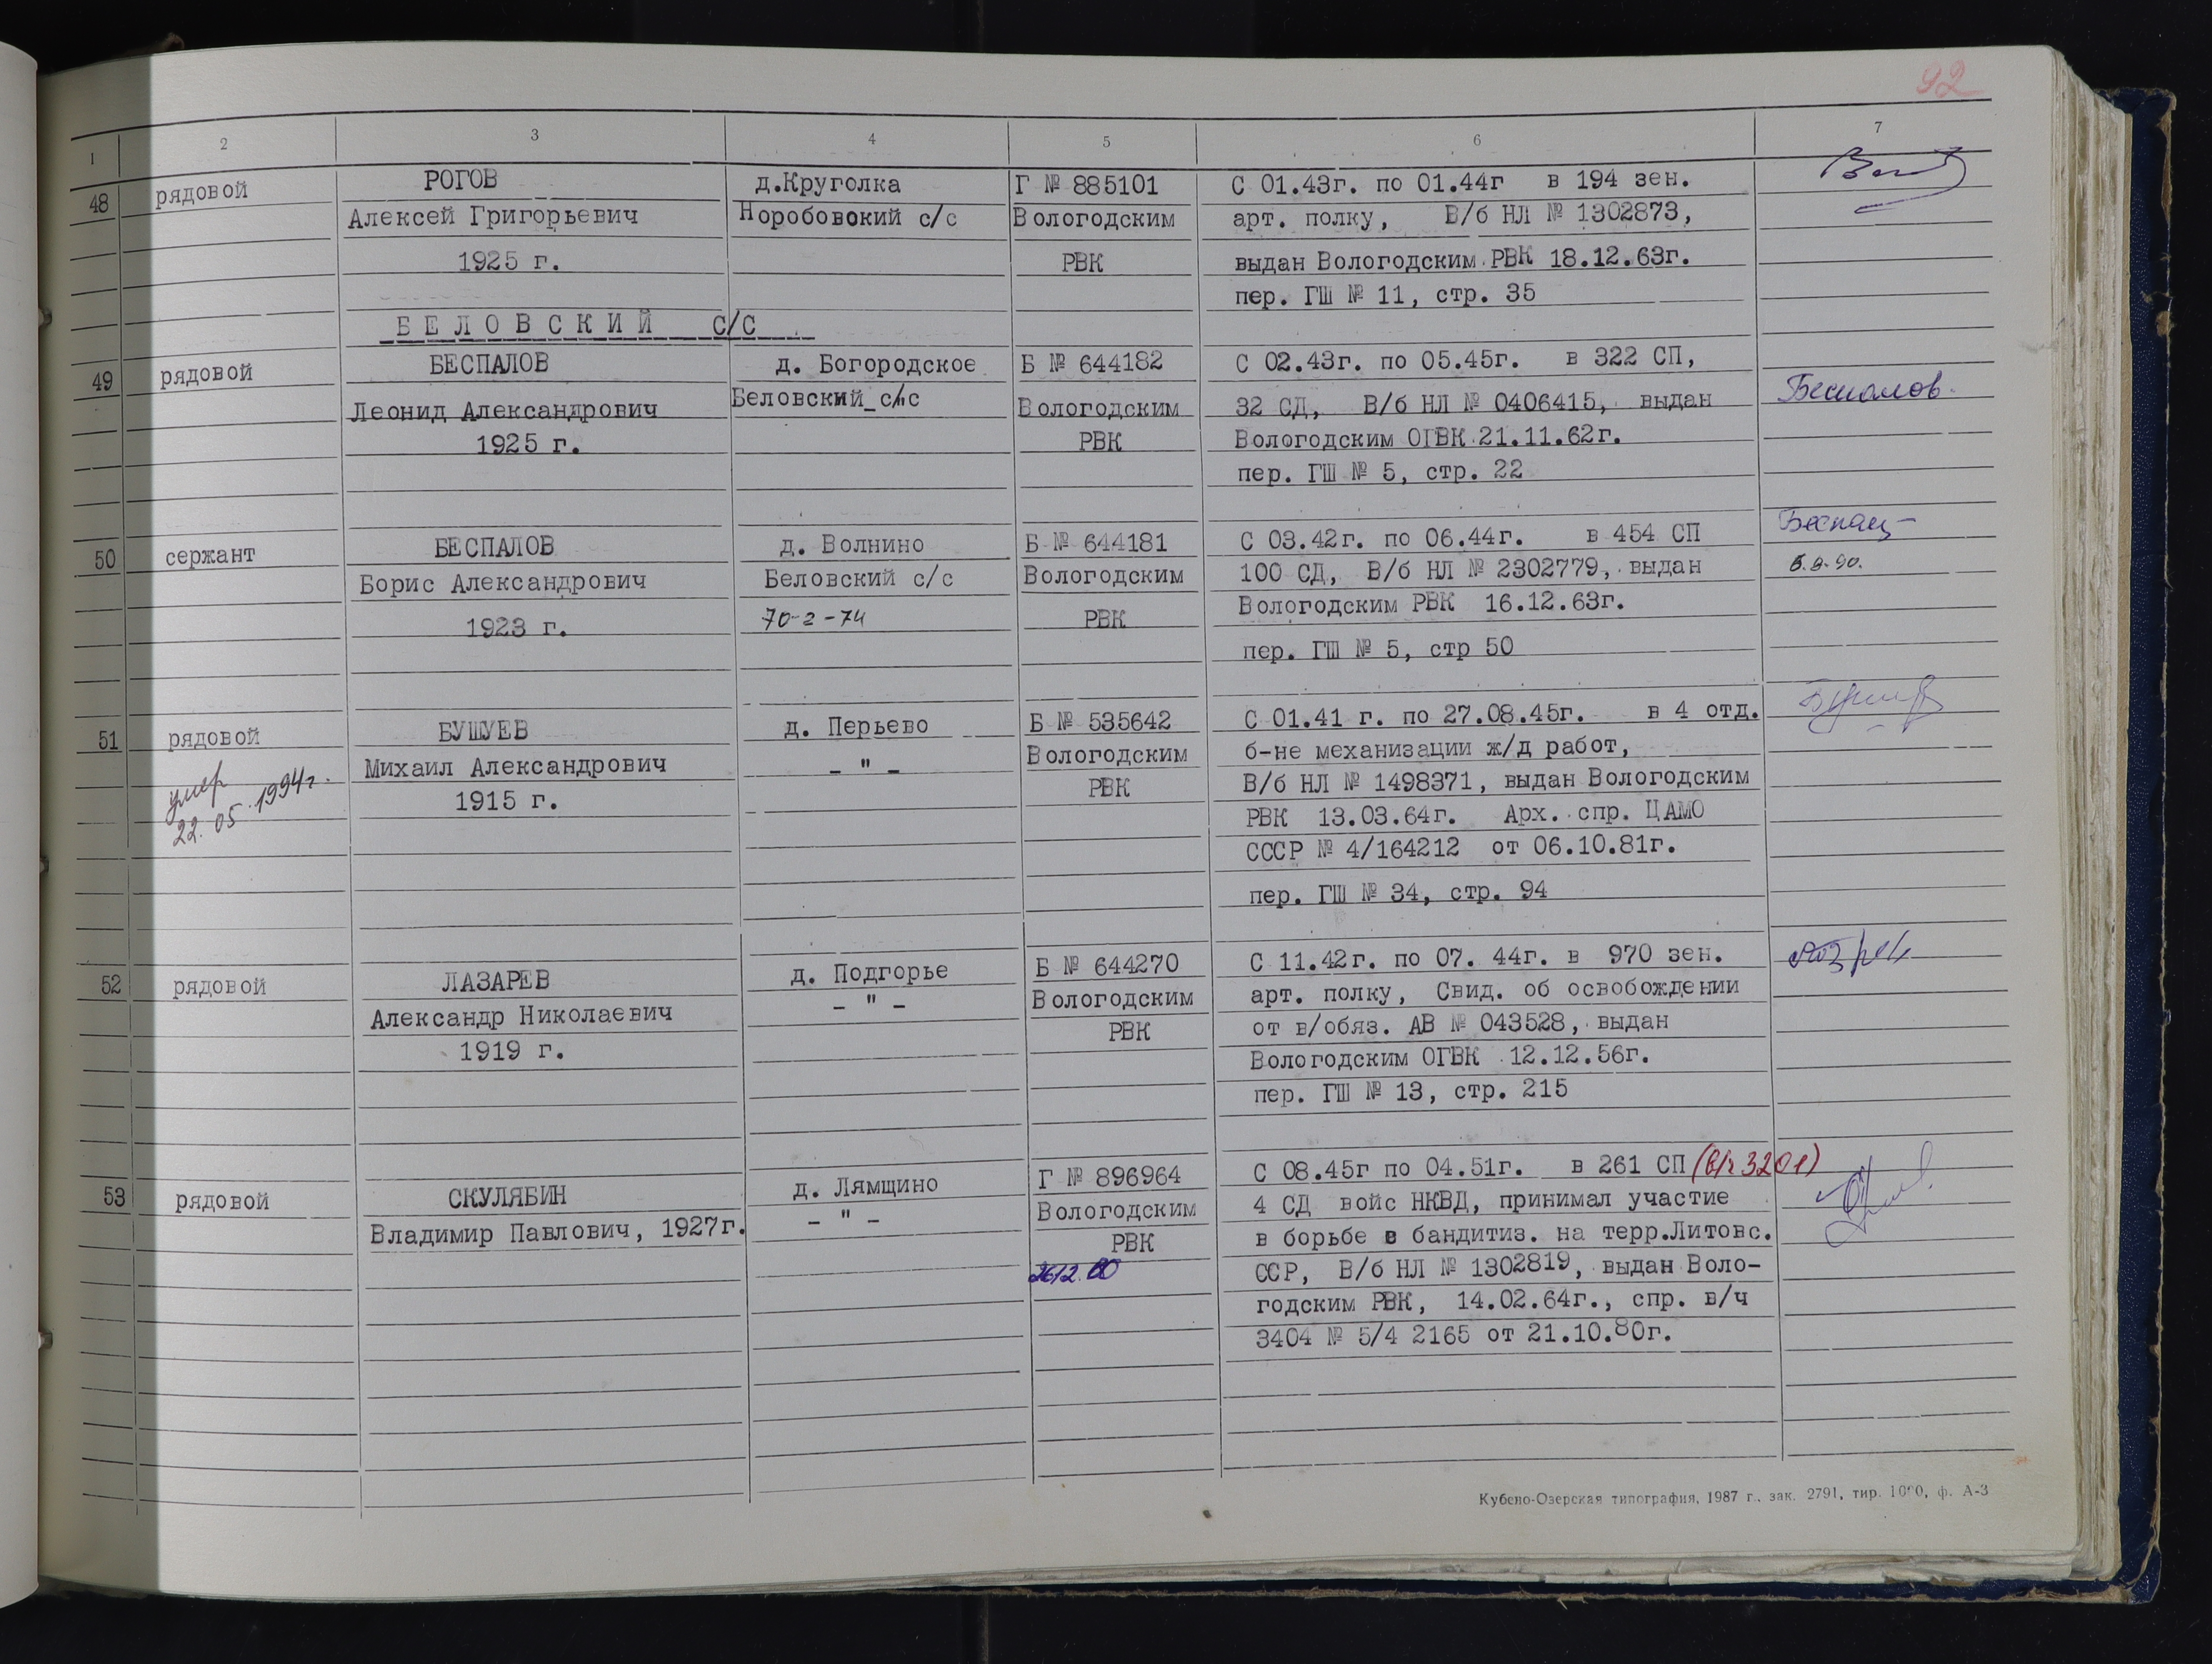 92
1 2 3 4 5 6 7
48 рядовой РОГОВ д.Круголка Г № 885101 С 01.43г. по 01.44г в 194 зен.
Алексей Григорьевич Норобовокий с/с Вологодским арт. полку, В/б НЛ № 1302873,
1925 г. РВК выдан Вологодским РВК 18.12.63г.
пер. ГШ № 11, стр. 35
БЕЛОВСКИЙ С/С
49 рядовой БЕСПАЛОВ д. Богородское Б № 644182 С 02.43г. по 05.45г. в 322 СП,
Леонид Александрович Беловский с/с Вологодским 32 СД, В/б НЛ № 0406415, выдан Беспалов.
1925 г. РВК Вологодским ОГВК 21.11.62г.
пер. ГШ № 5, стр. 22
50 сержант БЕСПАЛОВ д. Волнино Б № 644181 С 03.42г. по 06.44г. в 454 СП
Борис Александрович Беловский с/с Вологодским 100 СД, В/б НЛ № 2302779, выдан 6.9.90.
1923 г. 70-2-74 РВК Вологодским РВК 16.12.63г.
пер. ГШ № 5, стр 50
51 рядовой БУШУЕВ д. Перьево Б № 535642 С 01.41 г. по 27.08.45г. в 4 отд.
умер Михаил Александрович - " - Вологодским б-не механизации ж/д работ,
22.05.1994г. 1915 г. РВК В/б НЛ № 1498371, выдан Вологодским
РВК 13.03.64г. Арх. спр. ЦАМО
СССР № 4/164212 от 06.10.81г.
пер. ГШ № 34, стр. 94
52 рядовой ЛАЗАРЕВ д. Подгорье Б № 644270 С 11.42г. по 07. 44г. в 970 зен.
Александр Николаевич - " - Вологодским арт. полку, Свид. об освобождении
1919 г. РВК от в/обяз. АВ № 043528, выдан
Вологодским ОГВК 12.12.56г.
пер. ГШ № 13, стр. 215
53 рядовой СКУЛЯБИН д. Лямщино Г № 896964 С 08.45г по 04.51г. в 261 СП (в/ч 3201)
Владимир Павлович, 1927г. - " - Вологодским 4 СД войс НКВД, принимал участие
РВК в борьбе в бандитиз. на терр.Литовс.
ССР, В/б НЛ № 1302819, выдан Воло-
годским РВК, 14.02.64г., спр. в/ч
3404 № 5/4 2165 от 21.10.80г.
Кубено-Озерская типография, 1987 г., зак. 2791, тир. 1000, ф. А-3